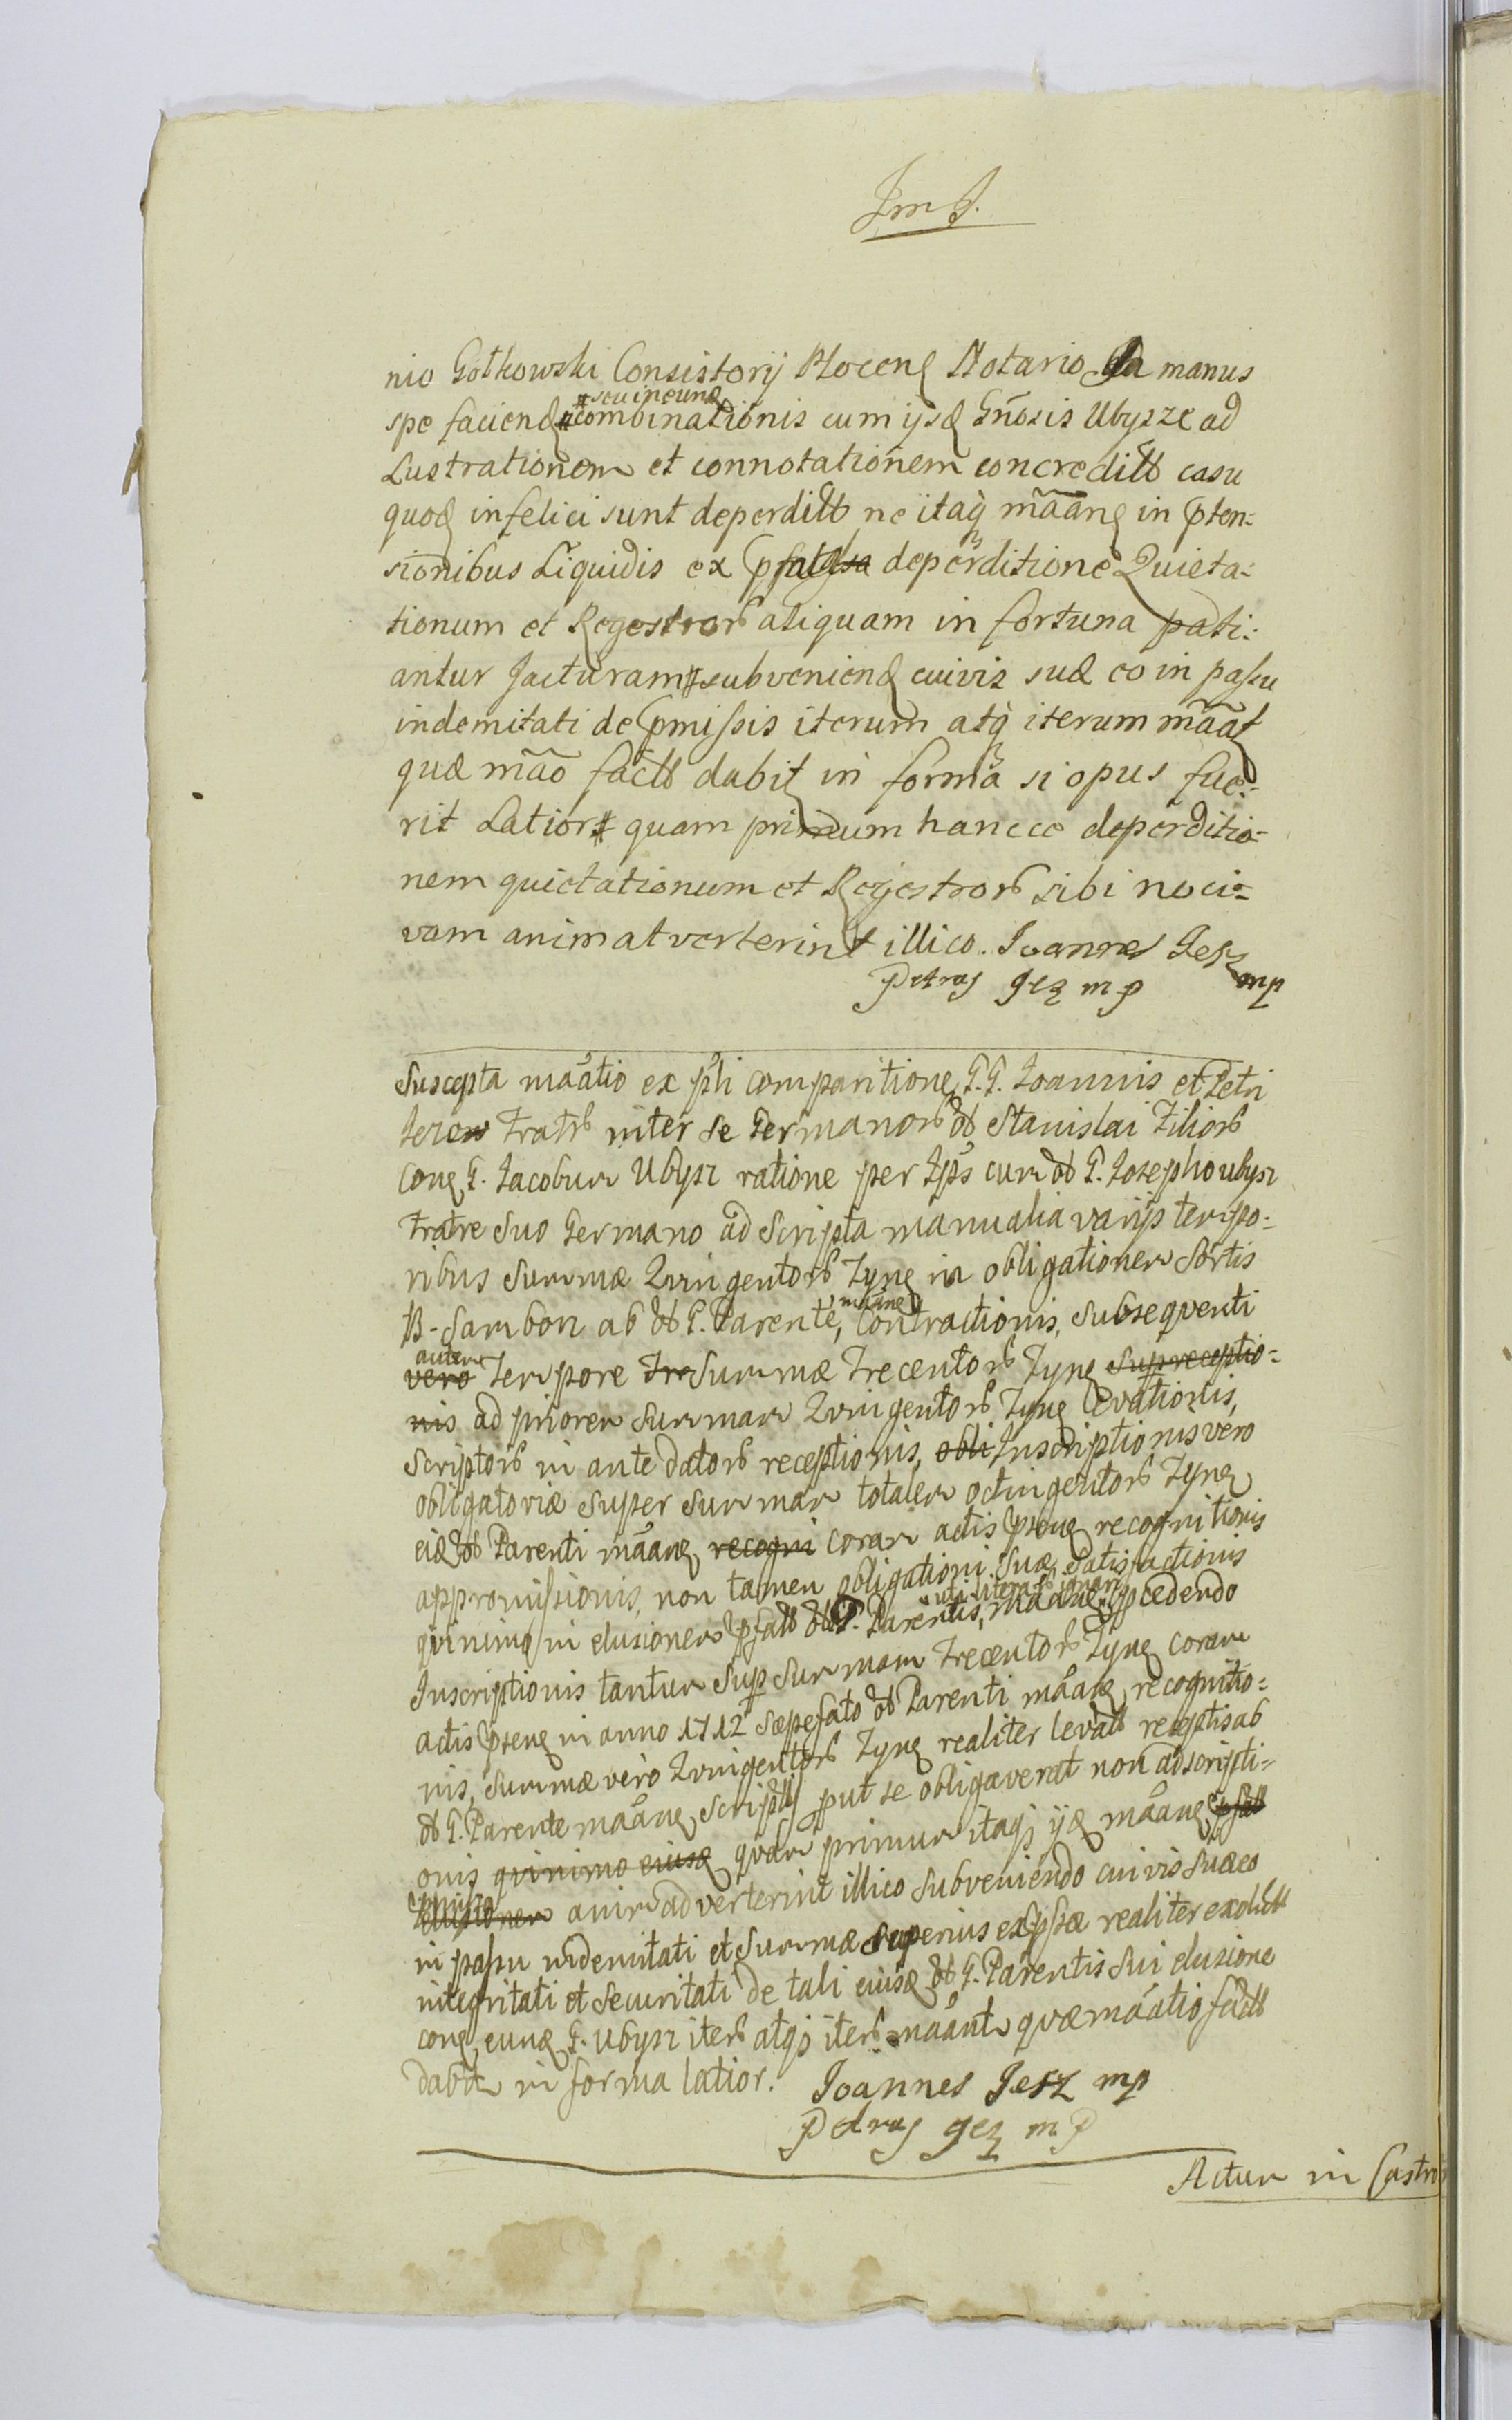 nio Gołkowski Consistorij Plocenֽ Notario manus
seu ineund
spe faciend combinationis cum ijsd Gnosis Ubysze ad
Lustrationem et connotationem concredit casu
quod infelici sunt deperdit ne itaq mãan in pten-
sionibus Liquidis ex deperditione Quieta-
tionum et Regestror aliquam in fortuna pati-
antur Jacturam subveniend cuivis suæ eo in passu
indemitati de pmissis iterum atq iterum mãat
quæ mão fact dabit in forma si opus fue-
rit Latiori quam primum hancce deperditio-
nem quietationum et Regestror sibi noci-
vam animatverterint illico. Joannes Jesz mp
Petrus Jez mp
Suscepta máatio ex pti comparitione G.G. Joannis et Petri
Jezew Fratr inter se Germanor olb Stanislai Filior
con G. Jacobum Ubysz ratione per Ips cum olb G. Josepho Ubysz
Fratre suo Germano ad scripta manualia varijs tempo-
ribus summæ Quingentor Tyn in obligationem sortis
B. Sambon ab olb G. Parente, máane Contractionis, subsequenti
autem
vero tempore Tre summæ Trecentor Tyn supreceptio-
nis ad priorem summam Quingentor Tyn levationis,
scriptor in ante dator receptionis, obli Inscriptionis vero
obligatoriæ super summam totalem octingentor Tyn
eid olb Parenti máan recogni coram actis psen recognitionis
appromissionis, non tamen obligationi suæ satisfactionis
uti literar ignari
quinimo in elusionem pfat olb G. Parentis, máane pcedendo
Inscriptionis tantum sup summam Trecentor Tyn coram
actis psen in anno 1712 sæpefato olb Parenti máan recognitio-
nis, summæ vero Quingentor Tyn realiter levat receptis ab
olb G. Parente máan, script put se obligaverat non adscripti-
onis quinimo eiusd quam primum itaq ijd máan
animadverterint illico subveniendo cuivis suæ eo
in passu indemitati et summæ superius expssæ realiter exolut
integritati et securitati de tali eiusd olb G. Parentis sui elusione
con, eund G. Ubysz iter atq iter máant quæ máatio fact
dabit in forma latior. Joannes Jesz mp
Petrus Jez mp
Actum in Castro